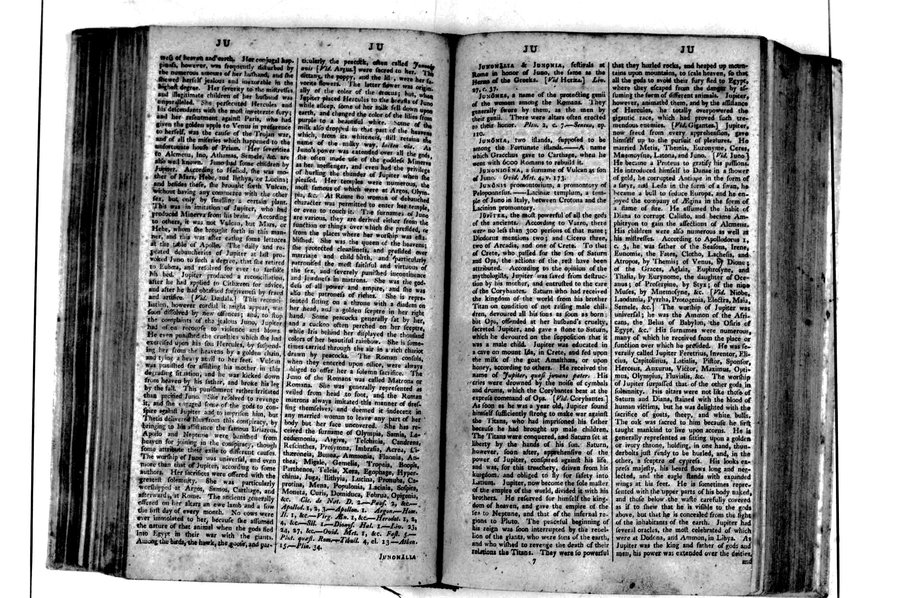 JU
JU
ness of heaven and earth. Her conjugal hap-
piness, however, was frequently disturbed by
the numerous amours of her husband, and she
shewed herself jealous and inexorable in the
highest degree. Her severity to the mistresses
and illegitimate children of her husband was
unparalleled. She persecuted Hercules and
his descendants with the most inveterate fury;
and her resentment against Paris, who had
given the golden apple to Venus in preference
to herself, was the cause of the Trojan war,
and of all the miseries which happened to the
unfortunate house of Priam. Her severities
to Alcmena, Ino, Athamas, Semele, &c. are
also well known. Juno had some children by
Jupiter. According to Hesiod, she was mo-
ther of Mars, Hebe, and Ilithyia, or Lucina;
and besides these, she brought forth Vulcan,
without having any commerce with the other
sex, but only by smelling a certain plant.
This was in imitation of Jupiter, who had
produced Minerva from his brain. According
to others, it was not Vulcan, but Mars, or
Hebe, whom she brought forth in this man-
ner, and this was after eating some lettuces
at the table of Apollo. The daily and re-
peated debaucheries of Jupiter at last pro-
voked Juno to such a degree, that she retired
to Eubœa, and resolved for ever to forsake
his bed. Jupiter produced a reconciliation,
after he had applied to Cithæron for advice,
and after he had obtained forgiveness by fraud
and artifice. [Vid. Dædala.] This reconci-
liation, however cordial it might appear, was
soon dissolved by new offences; and, to stop
the complaints of the jealous Juno, Jupiter
had often recourse to violence and blows.
He even punished the cruelties which she had
exercised upon his son Hercules, by suspend-
ing her from the heavens by a golden chain,
and tying a heavy anvil to her feet. Vulcan
was punished for assisting his mother in this
degrading situation, and he was kicked down
from heaven by his father, and broke his leg
by the fall. This punishment rather irritated
than pacified Juno. She resolved to revenge
it, and she engaged some of the gods to con-
spire against Jupiter and to imprison him, but
Thetis delivered him from this conspiracy, by
bringing to his assistance the famous Briareus.
Apollo and Neptune were banished from
heaven for joining in the conspiracy, though
some attribute their exile to different causes.
The worship of Juno was universal, and even
more than that of Jupiter, according to some
authors. Her sacrifices were offered with the
greatest solemnity. She was particularly
worshipped at Argos, Samos, Carthage, and
afterwards at Rome. The ancients generally
offered on her altars an ewe lamb and a sow
the first day of every month. No cows were
ever immolated to her, because she assumed
the nature of that animal when the gods fled
into Egypt in their war with the giants.
Among the birds, the hawk, the goose, and par-
ticularly the peacock, often called Junonia
avis [Vid. Argus.] were sacred to her. The
dittany, the poppy, and the lily, were her fa-
vorite flowers. The latter flower was origin-
ally of the color of the crocus; but, when
Jupiter placed Hercules to the breasts of Juno
while asleep, some of her milk fell down upon
earth, and changed the color of the lilies from
purple to a beautiful white. Some of the
milk also dropped in that part of the heavens
which, from its whiteness, still retains the
name of the milky way, lactea via. As
Juno's power was extended over all the gods,
she often made use of the goddess Minerva
as her messenger, and even had the privilege
of hurling the thunder of Jupiter when she
pleased. Her temples were numerous, the
most famous of which were at Argos, Olym-
pia, &c. At Rome no woman of debauched
character was permitted to enter her temple,
or even to touch it. The surnames of Juno
are various, they are derived either from the
function or things over which she presided, or
from the places where her worship was esta-
blished. She was the queen of the heavens;
she protected cleanliness, and presided over
marriage and child birth, and particularly
patronised the most faithful and virtuous of
the sex, and severely punished incontinence
and lewdness in matrons. She was the god-
dess of all power and empire, and she was
also the patroness of riches. She is repre-
sented sitting on a throne with a diadem on
her head, and a golden sceptre in her right
hand. Some peacocks generally sat by her,
and a cuckoo often perched on her sceptre,
while Iris behind her displayed the thousand
colors of her beautiful rainbow. She is some-
times carried through the air in a rich chariot
drawn by peacocks. The Roman consuls,
when they entered upon office, were always
obliged to offer her a solemn sacrifice. The
Juno of the Romans was called Matrona or
Romana. She was generally represented as
veiled from head to foot, and the Roman
matrons always imitated this manner of dres-
sing themselves, and deemed it indecent in
any married woman to leave any part of her
body but her face uncovered. She has re-
ceived the surname of Olympia, Samia, La-
cedæmonia, Argiva, Telchinia, Candrena,
Rescinthes, Prosymna, Imbrasia, Acrea, Ci-
thæroneia, Bunea, Ammonia, Fluonia, An-
thea, Migale, Gemelia, Tropeia, Boopis,
Parthenos, Teleia, Xera, Egophage, Hyper-
chinia, Juga, Ilithyia, Lucina, Pronuba, Ca-
protina, Mena, Populonia, Lacinia, Sospita,
Moneta, Curis, Domiduca, Februa, Opigenia,
&c. Cic. de Nat. D. 2.—Paus. 2, &c.—
Apollod. 1, 2, 3.—Apollon. 1. Argon.—Hom.
Il. 1, &c.—Virg. Æn. 1, &c.—Herodot. 1, 2,
4, &c.—Sil. 1.—Dionys. Hal. 1.—Liv. 23,
24, 27, &c.—Ovid. Met. 1, &c. Fast. 5.—
Plut. quæst. Rom.—Tibull. 4, el. 13.—Athen.
15.—Plin. 34.
JUNONALIA
JU
JU
JUNONALIA & JUNONIA, festivals at
Rome in honor of Juno, the same as the
Heræa of the Greeks. [Vid Heræa.] Liv.
27, c. 37.
JUNONES, a name of the protecting genii
of the women among the Romans. They
generally swore by them, as the men by
their genii. There were altars often erected
to their honor. Plin. 2, c. 7.—Seneca, ep.
110.
JUNONIA, two islands, supposed to be
among the Fortunate islands.—A name
which Gracchus gave to Carthage, when he
went with 6000 Romans to rebuild it.
JUNONIGENA, a surname of Vulcan as son
of Juno. Ovid. Met. 4, v. 173.
JUNONIS promontorium, a promontory of
Peloponnesus.—Laciniæ templum, a tem-
ple of Juno in Italy, between Crotona and the
Lacinian promontory.
JUPITER, the most powerful of all the gods
of the ancients. According to Varro, there
were no less than 300 persons of that name;
Diodorus mentions two; and Cicero three,
two of Arcadia, and one of Crete. To that
of Crete, who passed for the son of Saturn
and Ops, the actions of the rest have been
attributed. According to the opinion of the
mythologists, Jupiter was saved from destruc-
tion by his mother, and entrusted to the care
of the Corybantes. Saturn who had received
the kingdom of the world from his brother
Titan on condition of not raising male chil-
dren, devoured all his sons as soon as born;
but Ops, offended at her husband's cruelty,
secreted Jupiter, and gave a stone to Saturn,
which he devoured on the supposition that it
was a male child. Jupiter was educated in
a cave on mount Ida, in Crete, and fed upon
the milk of the goat Amalthæa, or upon
honey, according to others. He received the
name of Jupiter, quasi juvans pater. His
cries were drowned by the noise of cymbals
and drums, which the Corybantes beat at the
express command of Ops. [Vid. Corybantes.]
As soon as he was a year old, Jupiter found
himself sufficiently strong to make war against
the Titans, who had imprisoned his father
because he had brought up male children.
The Titans were conquered, and Saturn set at
liberty by the hands of his son. Saturn,
however, soon after, apprehensive of the
power of Jupiter, conspired against his life,
and was, for this treachery, driven from his
kingdom, and obliged to fly for safety into
Latium. Jupiter, now become the sole master
of the empire of the world, divided it with his
brothers. He reserved for himself the king-
dom of heaven, and gave the empire of the
sea to Neptune, and that of the infernal re-
gions to Pluto. The peaceful beginning of
his reign was soon interrupted by the rebel-
lion of the giants, who were sons of the earth,
and who wished to revenge the death of their
relations the Titans. They were so powerful
7
that they hurled rocks, and heaped up moun-
tains upon mountains, to scale heaven, so that
all the gods to avoid their fury fled to Egypt,
where they escaped from the danger by as-
suming the form of different animals. Jupiter,
however, animated them, and by the assistance
of Hercules, he totally overpowered the
gigantic race, which had proved such tre-
mendous enemies. [Vid. Gigantes.] Jupiter,
now freed from every apprehension, gave
himself up to the pursuit of pleasures. He
married Metis, Themis, Euronyme, Ceres,
Mnemosyne, Latona, and Juno. [Vid. Juno.]
He became a Proteus to gratify his passions.
He introduced himself to Danae in a shower
of gold, he corrupted Antiope in the form of
a satyr, and Leda in the form of a swan, he
became a bull to seduce Europa, and he en-
joyed the company of Ægina in the form of
a flame of fire. He assumed the habit of
Diana to corrupt Callisto, and became Am-
phitryon to gain the affections of Alcmena.
His children were also numerous as well as
his mistresses. According to Apollodorus 1,
c. 3, he was father of the Seasons, Irene,
Eunomia, the Fates, Clotho, Lachesis, and
Atropos, by Themis; of Venus, by Dione;
of the Graces, Aglaia, Euphrosyne, and
Thalia, by Eurynome, the daughter of Oce-
anus; of Proserpine, by Styx; of the nine
Muses, by Mnemosyne, &c. [Vid. Niobe,
Laodamia, Pyrrha, Protogenia, Electra, Maia,
Semele, &c.] The worship of Jupiter was
universal; he was the Ammon of the Afri-
cans, the Belus of Babylon, the Osiris of
Egypt, &c. His surnames were numerous,
many of which he received from the place or
function over which he presided. He was se-
verally called Jupiter Feretrius, Inventor, Eli-
cius, Capitolinus, Latialis, Pistor, Sponsor,
Herceus, Anxurus, Victor, Maximus, Opti-
mus, Olympius, Fluvialis, &c. The worship
of Jupiter surpassed that of the other gods in
solemnity. His altars were not like those of
Saturn and Diana, stained with the blood of
human victims, but he was delighted with the
sacrifice of goats, sheep, and white bulls.
The oak was sacred to him because he first
taught mankind to live upon acorns. He is
generally represented as sitting upon a golden
or ivory throne, holding, in one hand, thun-
derbolts just ready to be hurled, and, in the
other, a sceptre of cypress. His looks ex-
press majesty, his beard flows long and neg-
lected, and the eagle stands with expanded
wings at his feet. He is sometimes repre-
sented with the upper parts of his body naked,
and those below the waist carefully covered
as if to shew that he is visible to the gods
above, but that he is concealed from the sight
of the inhabitants of the earth. Jupiter had
several oracles, the most celebrated of which
were at Dodona, and Ammon, in Libya. As
Jupiter was the king and father of gods and
men, his power was extended over the deities,
and